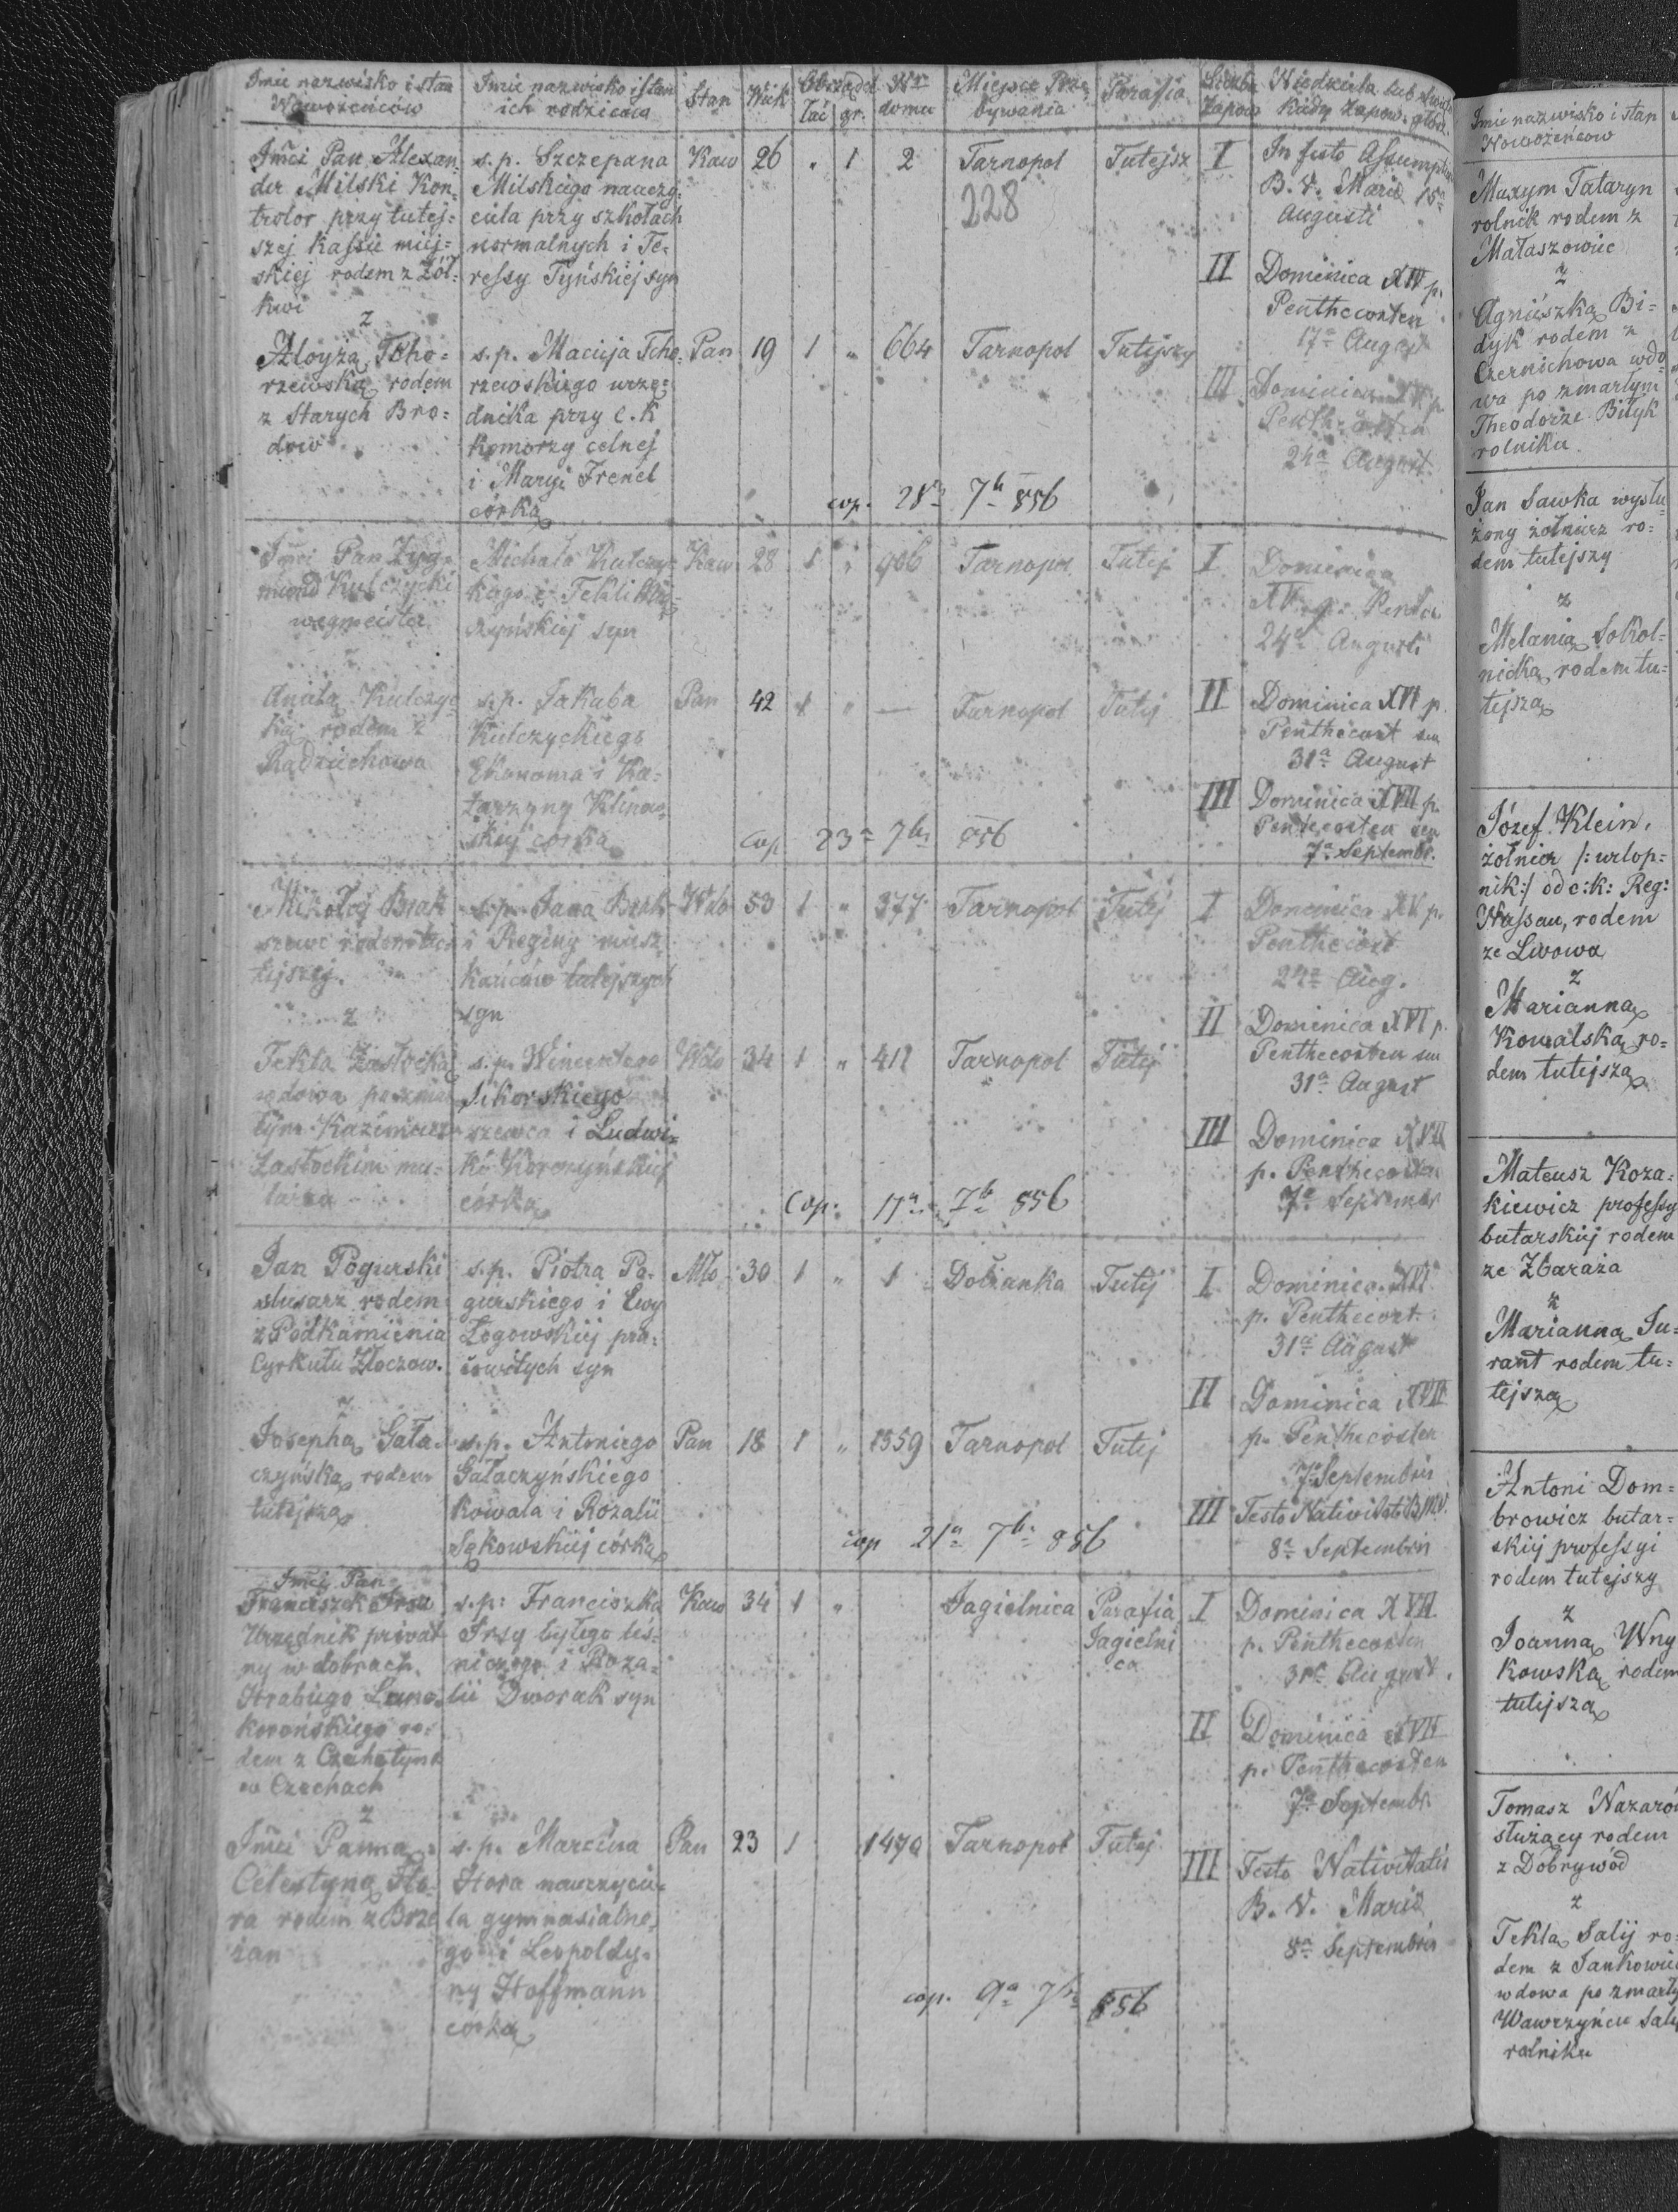 Imie nazwisko i stan
Nowożeńców
Imie nazwisko i stan
ich rodziców
Stan
Wiek
Obrządek
łać gr.
Nr
domu
Miejsce Prze
bywania
Parafia
Liczba
Zapow
Niedziela lub święto
każdy zapow. głos.
Imci Pan Alexan
der Milski Kon
trolor przy tutej=
szej kassie miej=
skiej rodem z Żół=
kwi
z
s. p. Szczepana
Milskiego nauczy
ciela przy szkołach
normalnych i Te=
ressy Tyńskiej syn
Kaw 26 " 1 2 Tarnopol Tutejsz
228
I In festo Assumptio
B. V. Mariæ 15a
Augusti
II Dominica XIV p.
Penthecosten
17a August
Aloyza Tcho=
rzewska rodem
z Starych Bro=
dów
s. p. Macieja Tcho=
rzewskiego urzę=
dnika przy c. k
komorzy celnej
i Maryi Frenel
córka
Pan 19 1 " 664 Tarnopol Tutejszy
III Dominica XV p.
Penthecosten
24a August
cop. 28a 7b 856
Imci Pan Zyg=
mund Kulczycki
wegmeister
z
Michała Kulczyc
kiego i Tekli
syn
Kaw 28 1 " 906 Tarnopol Tutej
I Dominica
XV p. Pentec
24a Augusti
Aniela Kulczyc
kij rodem z
Radziechowa
s. p. Jakuba
Kulczyckiego
Ekonoma i Ka=
tarzyny Klinow
skiej córka
Pan 42 1 " — Tarnopol Tutej
II Dominica XVI p.
Penthecost seu
31a August
III Dominica XVII p.
Pentecosten seu
7a Septembr.
cop 23a 7br 856
Mikołaj Brak
szewc rodem tu
tejszy.
z
s. p. Jana Brak
i Reginy miesz
kańców tutejszych
syn
Wdo 53 1 " 377 Tarnopol Tutej
I Dominica XV p.
Penthecost
24a Aug.
Tekla Zasłocka
wdowa po zmar
łym Kazimierz
Zasłockim mu=
larzu
s. p. Wincentego
Sikorskiego
szewca i Ludwi=
ki Korczyńskiej
córka
Wdo 34 1 " 412 Tarnopol Tutej
II Dominica XVI p.
Penthecosten seu
31a August
III Dominica XVII
p. Penthecosten
7a September
Cop. 17a 7b 856
Jan Pogurski
slusarz rodem
z Podkamienia
Cyrkułu Złoczow.
z
s. p. Piotra Po=
gurskiego i Ewy
Łogowskiej pra=
cowitych syn
Mło 30 1 " 1 Dolżanka Tutej
I Dominica XVI
p. Penthecost.
31a August
II Dominica XVII
p. Penthecosten
7a Septembris
Josepha Gała=
czyńska rodem
tutejsza
s. p. Antoniego
Gałaczyńskiego
kowala i Rozalii
Sękowskiej córka
Pan 18 1 " 1559 Tarnopol Tutej
III Festo Nativitatis B.M.V.
8a Septembris
cop 21a 7br 856
Imci Pan
Franciszek Irsa
Urzędnik privat
ny w dobrach
Hrabiego Lanc
korońskiego ro=
dem z
w Czechach
z
s. p: Franciszka
Irsy byłego leś=
niczego i Roza=
lii Dworak syn
Kaw 34 1 " Jagielnica Parafia
Jagielni
ca
I Dominica XVI
p. Penthecosten
31a August
II Dominica XVII
p. Penthecosten
7a Septembr.
Imci Panna
Celestyna Ho=
ra rodem z Brze
żan
s. p. Marcina
Hora nauczycie=
la gymnasialne
go i Leopoldy=
ny Hoffmann
córka
Pan 23 1 1470 Tarnopol Tutej
III Festo Nativitatis
B. V. Mariæ
8a Septembris
cop. 9a 7br 856
Imie nazwisko i stan
Nowożeńcow
Maxym Tataryn
rolnik rodem z
Małaszowiec
z
Agnieszka Bi=
dyk rodem z
Czernichowa wdo
wa po zmarłym
Theodorze Biłyk
rolniku.
Jan Sawka wysłu
żony żołnierz ro=
dem tutejszy
z
Melania Sokol=
nicka rodem tu=
tejsza
Józef Klein,
żołnier /: urlop=
nik:/ od c: k: Reg:
Nassau, rodem
ze Lwowa
z
Marianna
Kowalska ro=
dem tutejsza
Mateusz Koza=
kiewicz professy
butarskiej rodem
ze Zbaraża
z
Marianna Ju=
rant rodem tu=
tejsza
Antoni Dom=
browicz butar=
skiej professyi
rodem tutejszy
z
Joanna Wny
kowska rodem
tutejsza
Tomasz Nazaró
służący rodem
z Dobrywód
z
Tekla Salij ro=
dem z Jankowiec
wdowa po zmarły
Wawrzyńcu Salij
rolniku